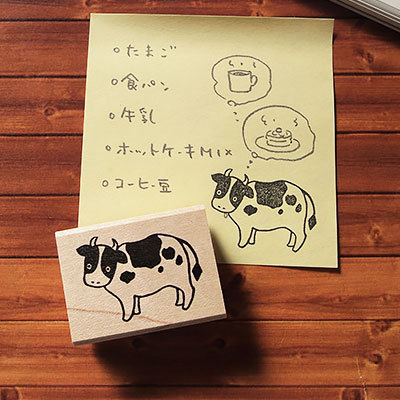 ○たまご
○食パン
○牛乳
○ホットケーキMIX
○コーヒー豆